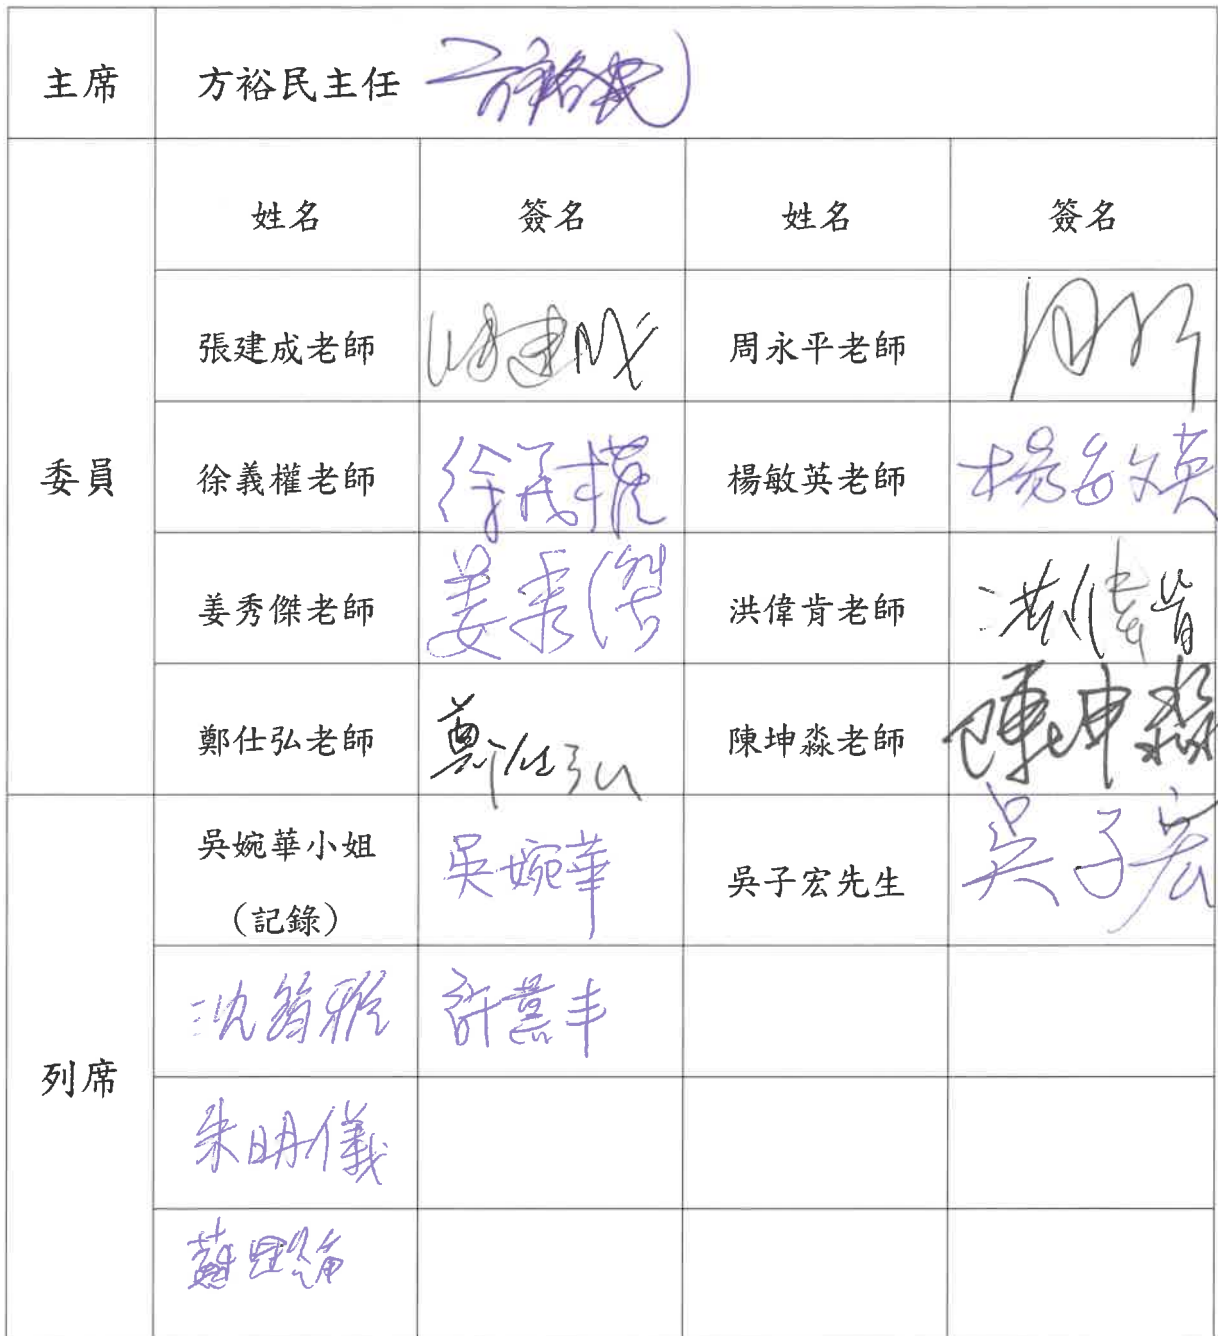 主席 方裕民主任 方裕民
姓名 簽名 姓名 簽名
張建成老師 張建成 周永平老師
委員 徐義權老師 徐義權 楊敏英老師 楊敏英
姜秀傑老師 姜秀傑 洪偉肯老師 洪偉肯
鄭仕弘老師 鄭仕弘 陳坤淼老師 陳坤淼
吳婉華小姐 吳婉華 吳子宏先生 吳子宏
(記錄)
沈筠雅 許薰丰
列席
朱明儀